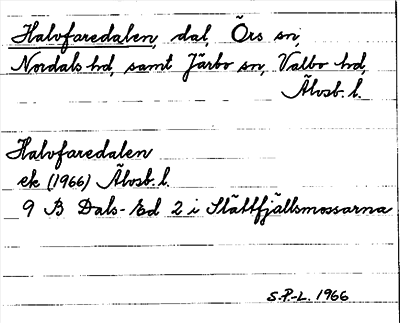 Halvfaredalen, dal, Örs sn,
Nordals hd, samt Järbo sn, Valbo hd,
Älvsb. l.
Halvfaredalen
ek (1966) Älvsb. l.
9 B Dals-Ed 2 i Slättfjällsmossarna
S.P.-L. 1966